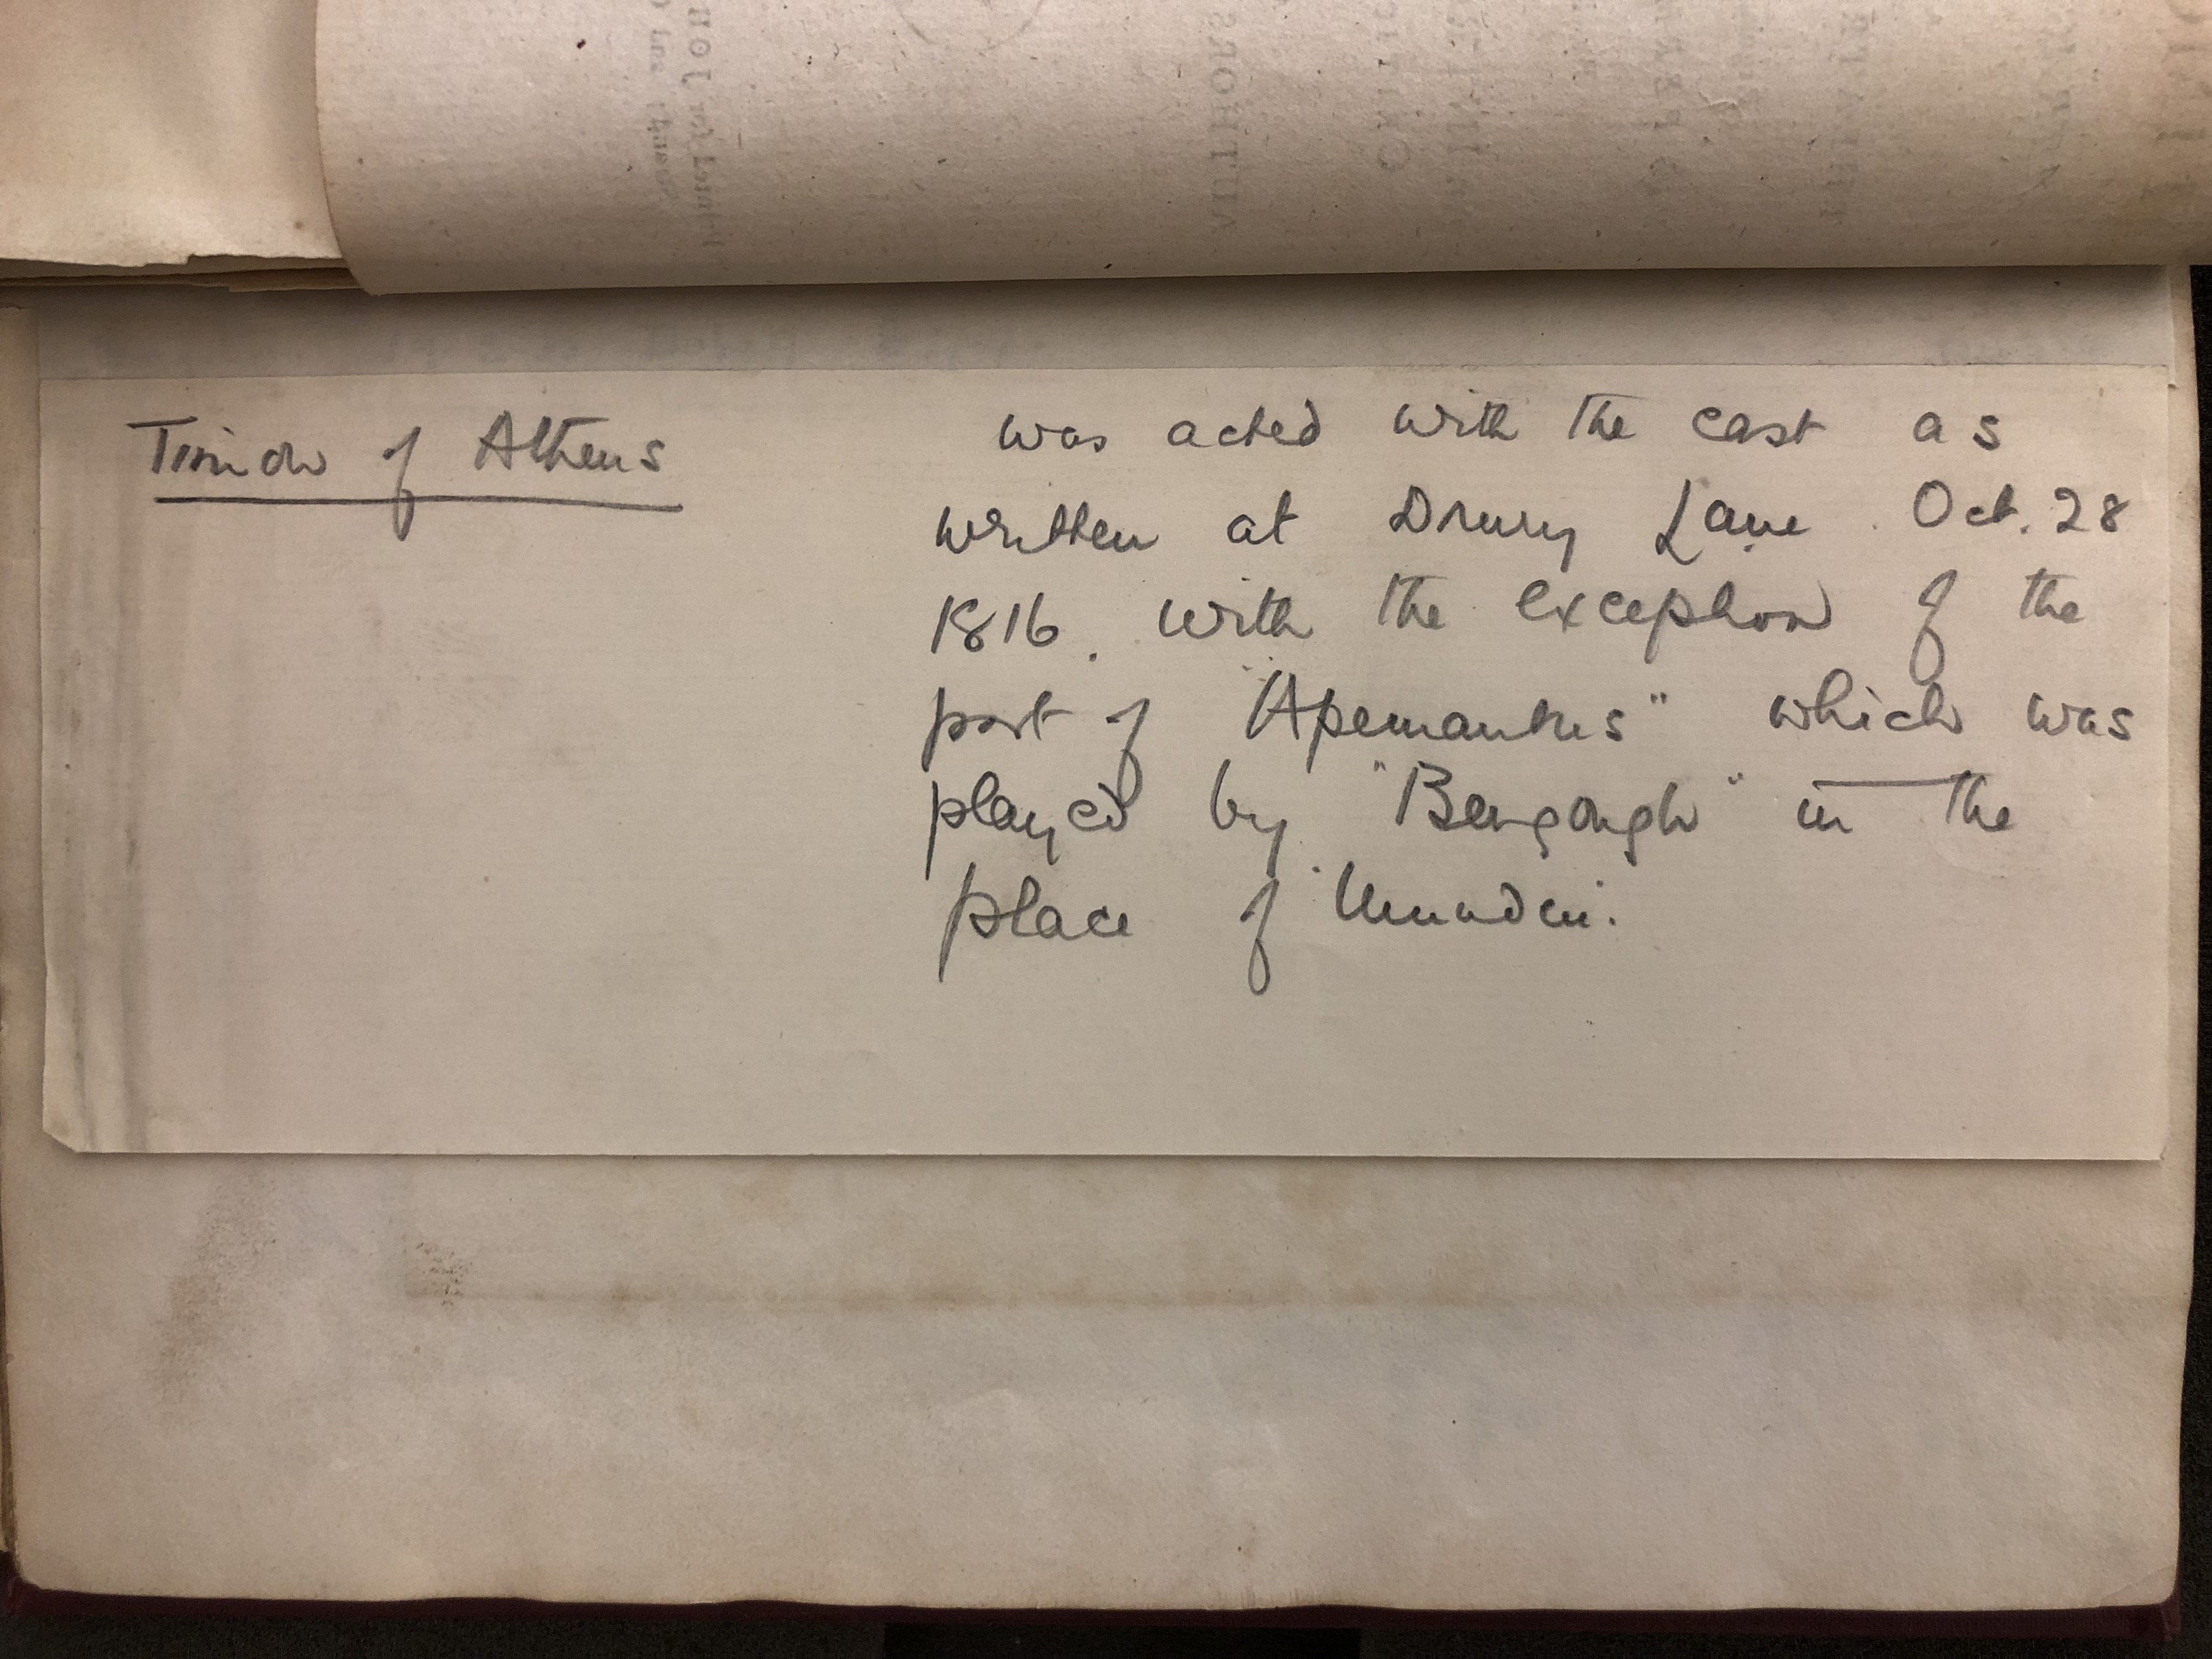 Timon of Athens
was acted with the cast as
written at Drury Lane. Oct. 28
1816. with the exception of the
part of "Apemantus" which was
played by "Bengough" in the
place of "Munden".
AUTHORS